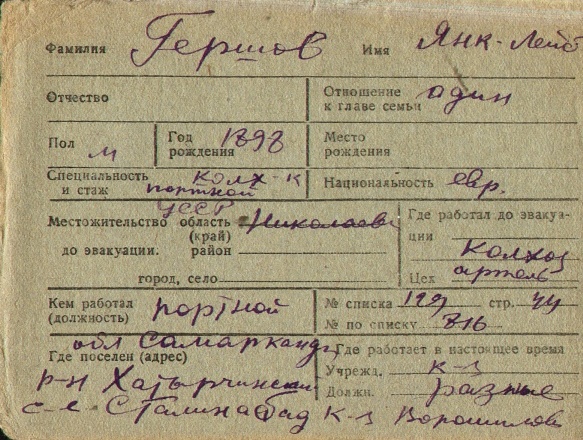 Фамилия Гершов Имя Янк-Лейб
Отчество
Отношение к главе семьи один
Пол м
Год рождения 1898
Место рождения
Специальность и стаж колх-к портной
Национальность евр.
Местожительство до эвакуации. область (край) УССР Николаев
район
город, село
Где работал до эвакуации Колхоз
Цех артель
Кем работал (должность) портной
№ списка 129 стр. 44
№ по списку 816
Где поселен (адрес) обл Самарканд
р-н Хатырчинский
с-с. Сталинабад к-з Ворошилов
Где работает в настоящее время
Учрежд. к-з
Должн. разные